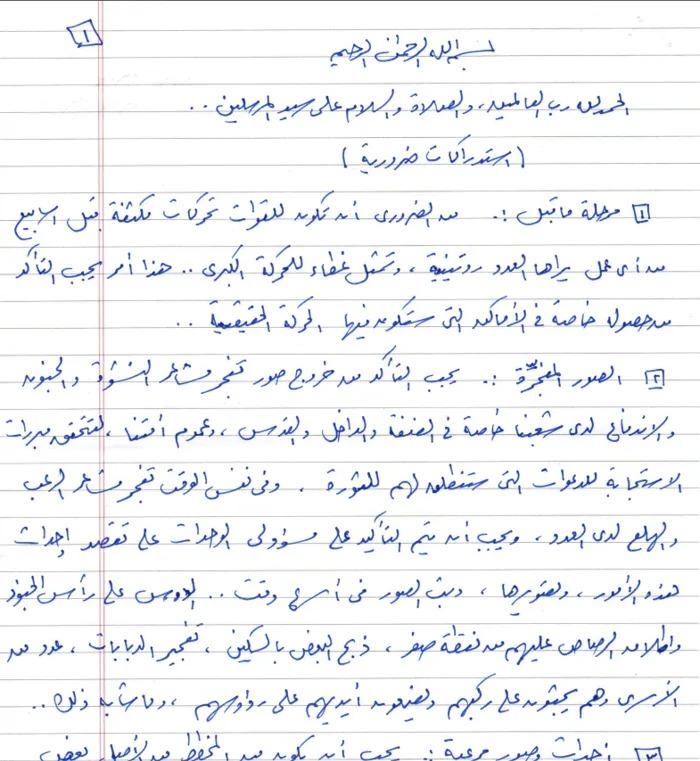 ١
بسم الله الرحمن الرحيم
الحمد لله رب العالمين، والصلاة والسلام على سيد المرسلين ..
(استدراكات ضرورية)
١ مرحلة ما قبل :. من الضروري أن تكون للقوات تحركات مكثفة قبل اسابيع
من أي عمل يراها العدو روتينية، وتمثل غطاء للحركة الكبرى .. هذا أمر يجب التأكد
من حصوله خاصة في الأماكن التي ستكون فيها الحركة الحقيقية ..
٢ الصور المفجرة :. يجب التأكد من خروج صور تفجر مشاعر النشوة والجنون
والاندفاع لدى شعبنا خاصة في الضفة والداخل والقدس، وعموم أمتنا، لتتحقق مبررات
الاستجابة للدعوات التي ستنطلق لهم للثورة، وفي نفس الوقت تفجر مشاعر الرعب
والهلع لدى العدو، ويجب أن يتم التأكيد على مسؤولي الوحدات على تقصد إحداث
هذه الأمور، وتصويرها، وبث الصور في أسرع وقت .. الدوس على رأس الجنود
واطلاق الرصاص عليهم من نقطة صفر، ذبح البعض بالسكين، تفجير الدبابات، عدد من
الأسرى وهم يجثون على ركبهم ويضعون أيديهم على رؤوسهم، وما شابه ذلك ..
٣ أحداث وصور مرعبة :. يجب أن يكون من المخطط من الأصل بعض